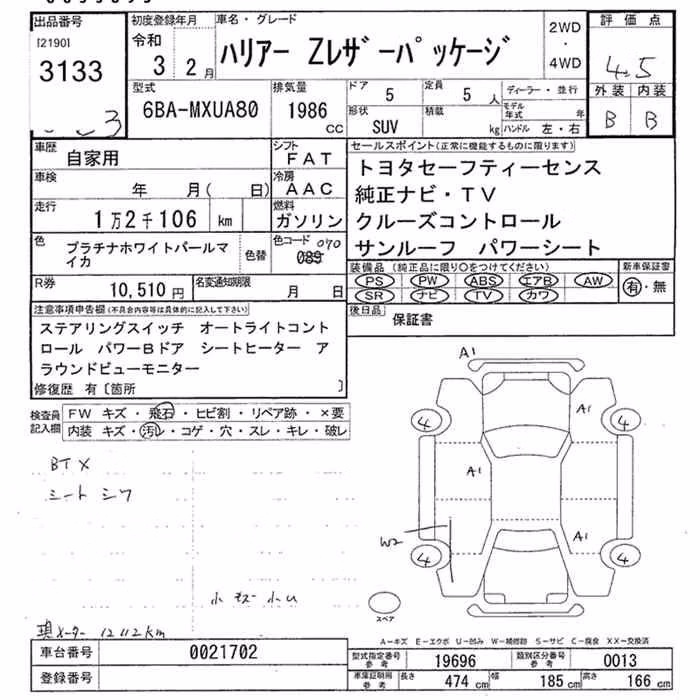 出品番号 初度登録年月 車名・グレード 2WD ・ 4WD 評価点
[2190] 令和
3133 3 2月 ハリアー Zレザーパッケージ 4.5
3 型式 排気量 ドア 定員 ディーラー・並行 外装 内装
6BA-MXUA80 1986 CC 5 5人 モデル年式 年 B B
形状 積載 kg ハンドル 左・右
SUV
車歴 自家用 シフト FAT セールスポイント(正常に機能するものに限ります)
車検 年 月( 日) 冷房 AAC トヨタセーフティーセンス
走行 1万2千106 km 燃料 ガソリン 純正ナビ・TV
クルーズコントロール
色 プラチナホワイトパールマイカ 色替 色コード 070 089 サンルーフ パワーシート
装備品(純正品に限り○をつけてください) 新車保証書
R券 10,510円 名変通知期限 月 日 PS PW ABS エアB AW 有・無
SR ナビ TV カワ
注意事項申告欄(不具合内容等は具体的に記入して下さい) 後日品 保証書
ステアリングスイッチ オートライトコント
ロール パワーBドア シートヒーター ア
ラウンドビューモニター
修復歴 有〔箇所 〕
検査員記入欄 FW キズ・飛石・ヒビ割・リペア跡・×要
内装 キズ・汚レ・コゲ・穴・スレ・キレ・破レ
A1
A1
4 4
BTX
A1
シート シワ
W2 A1
4 4
小キズ 小U
スペア
現メーター 12112km
A-キズ E-エクボ U-凹み W-補修跡 S-サビ C-腐食 XX-交換済
車台番号 0021702 型式指定番号 参考 19696 類別区分番号 参考 0013
登録番号 車庫証明用 参考 長さ 474 cm 幅 185 cm 高さ 166 cm